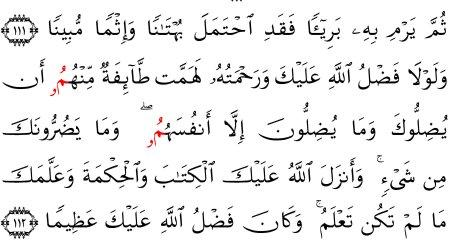 ثُمَّ يَرْمِ بِهِۦ بَرِيٓـًٔا فَقَدِ ٱحْتَمَلَ بُهْتَٰنًا وَإِثْمًا مُّبِينًا ١١١
وَلَوْلَا فَضْلُ ٱللَّهِ عَلَيْكَ وَرَحْمَتُهُۥ لَهَمَّت طَّآئِفَةٌ مِّنْهُمُۥ أَن
يُضِلُّوكَ وَمَا يُضِلُّونَ إِلَّا أَنفُسَهُمُۥ ۖ وَمَا يَضُرُّونَكَ
مِن شَىْءٍ ۚ وَأَنزَلَ ٱللَّهُ عَلَيْكَ ٱلْكِتَٰبَ وَٱلْحِكْمَةَ وَعَلَّمَكَ
مَا لَمْ تَكُن تَعْلَمُ ۚ وَكَانَ فَضْلُ ٱللَّهِ عَلَيْكَ عَظِيمًا ١١٢